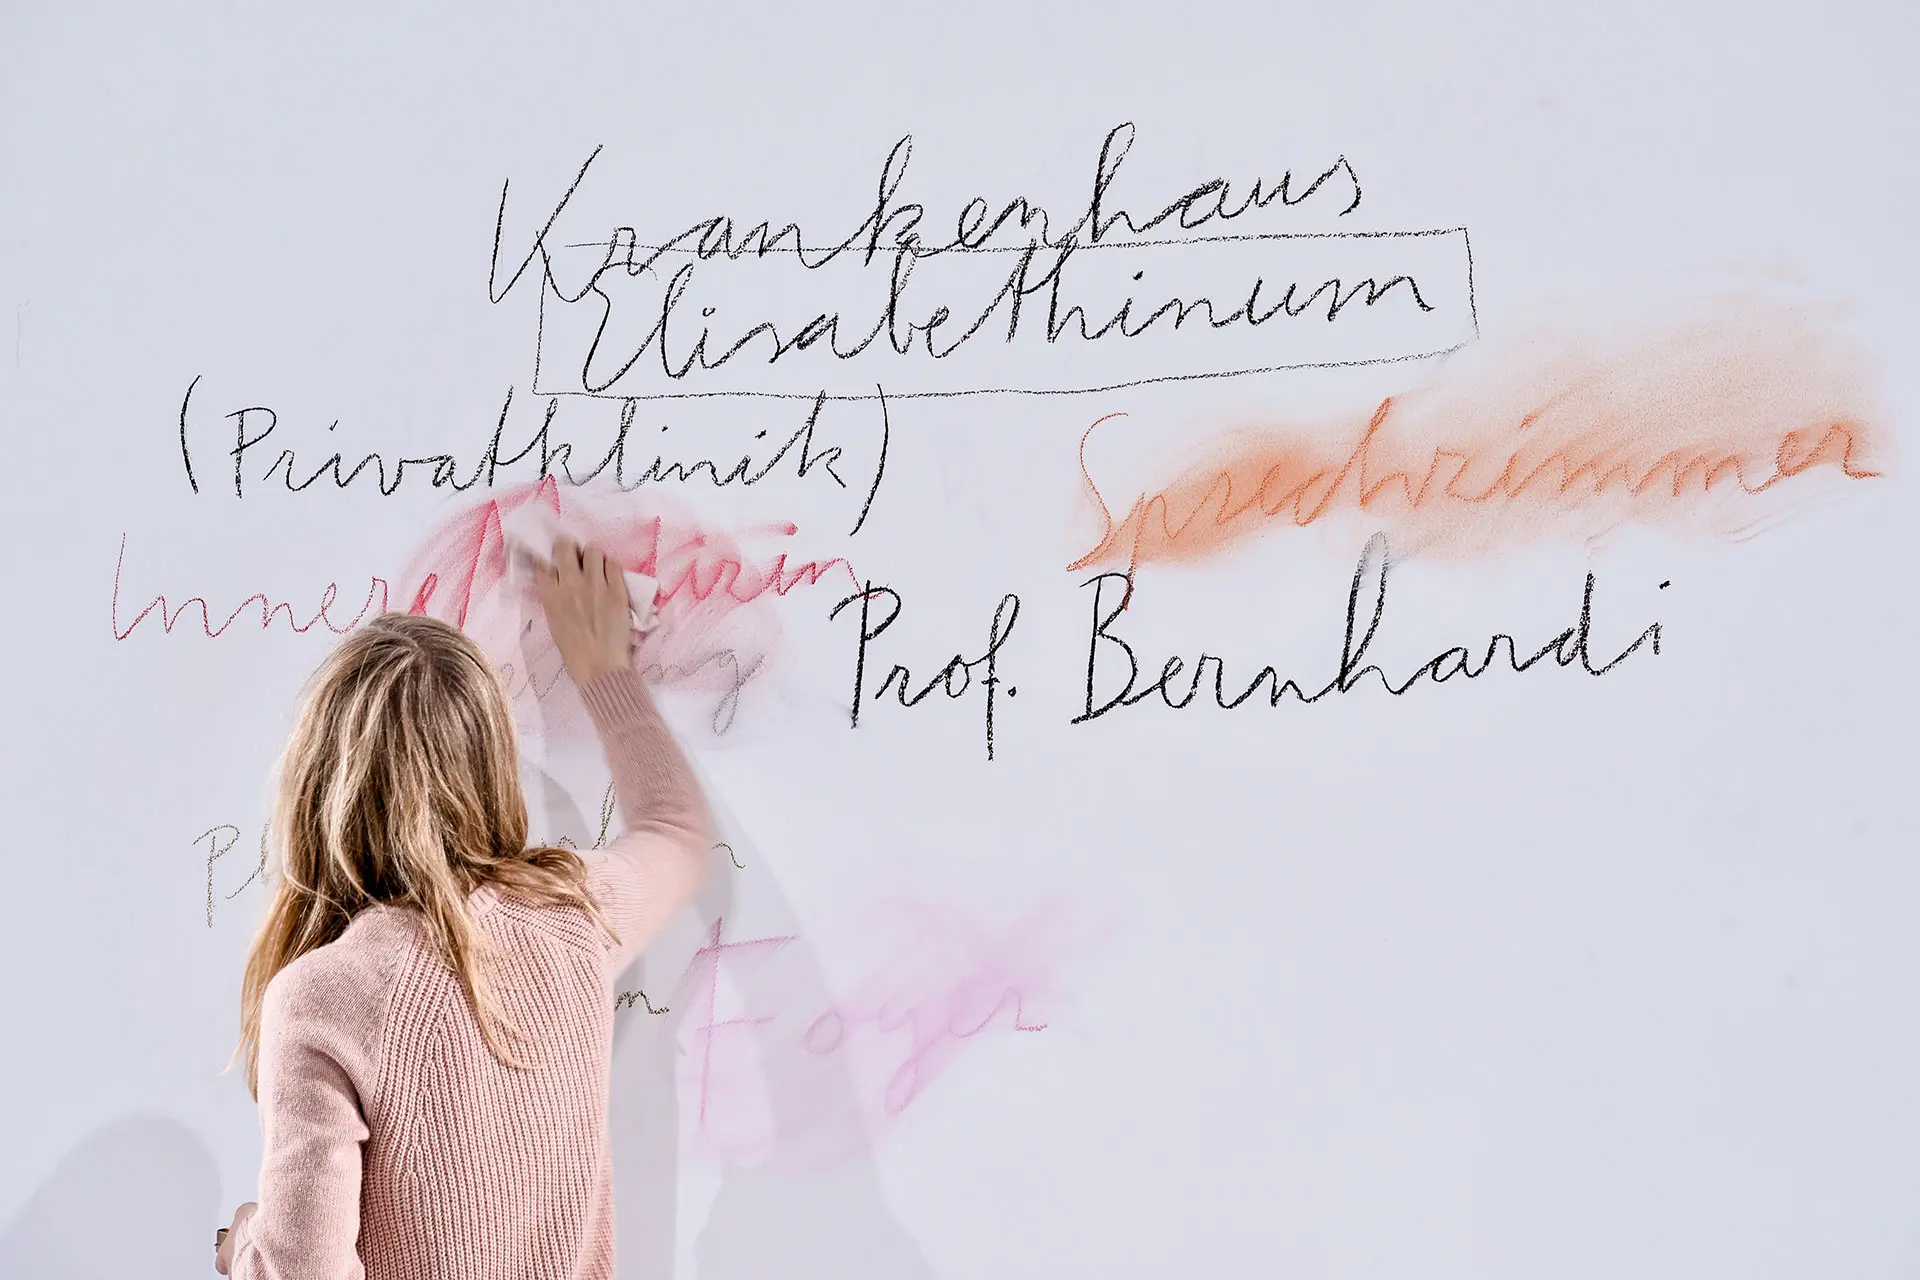 Krankenhaus
Elisabethinum
(Privatklinik)
Sprechzimmer
Innere
Prof. Bernhardi
Foyer